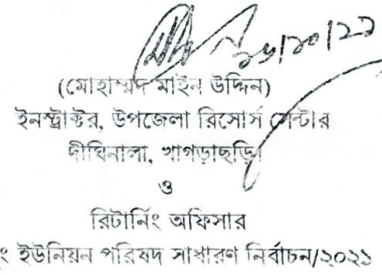 ২৬/১০/২১
(মোহাম্মদ মাইন উদ্দিন)
ইনস্ট্রাক্টর, উপজেলা রিসোর্স সেন্টার
দীঘিনালা, খাগড়াছড়ি।
ও
রিটার্নিং অফিসার
ং ইউনিয়ন পরিষদ সাধারণ নির্বাচন/২০২১